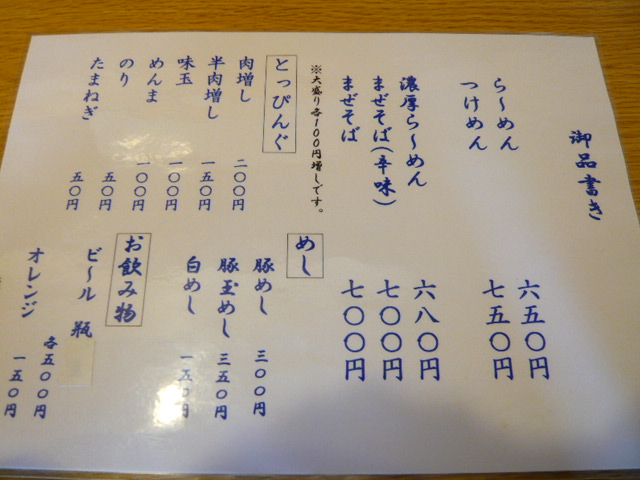 御品書き
ら～めん 六五〇円
つけめん 七五〇円
濃厚ら～めん 六八〇円
まぜそば(辛味) 七〇〇円
まぜそば 七〇〇円
※大盛り各100円増しです。
とっぴんぐ
肉増し 二〇〇円
半肉増し 一五〇円
味玉 一〇〇円
めんま 一〇〇円
のり 五〇円
たまねぎ 五〇円
めし
豚めし 三〇〇円
豚玉めし 三五〇円
白めし 一五〇円
お飲み物
ビ～ル 瓶 各五〇〇円
オレンジ 一五〇円